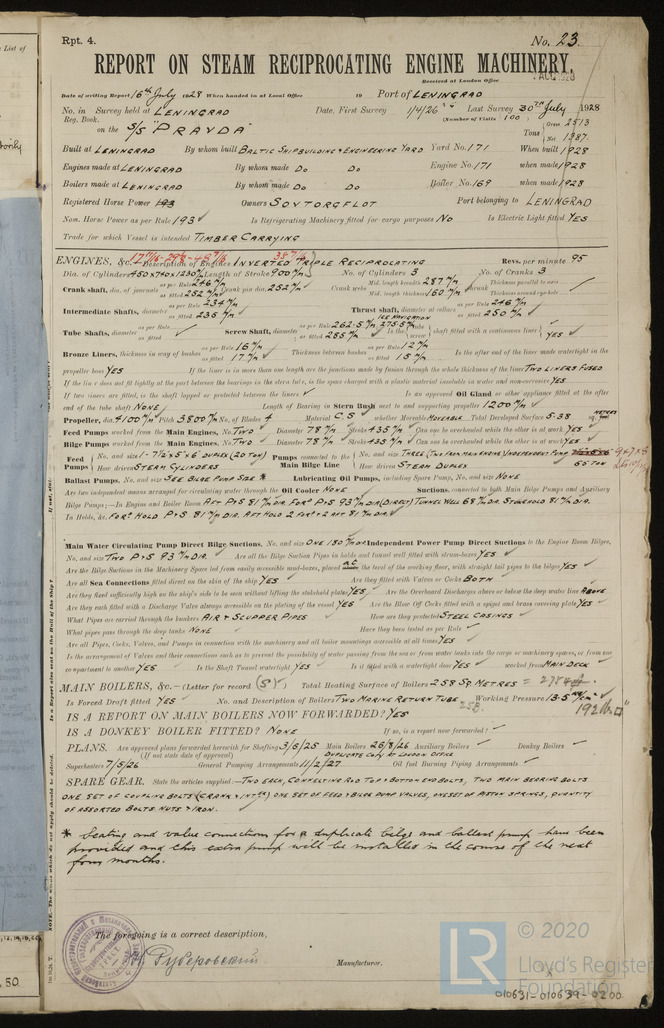 Rpt. 4.
No. 23.
REPORT ON STEAM RECIPROCATING ENGINE MACHINERY.
Received at London Office
Date of writing Report 16th July 1928 When handed in at Local Office 19 Port of LENINGRAD
No. in Survey held at LENINGRAD Date, First Survey 1/4/26 Last Survey 30TH July 1928
Reg. Book. (Number of Visits 100)
on the S/S "PRAVDA" Tons Gross 2513
Net 1387
Built at LENINGRAD By whom built BALTIC SHIPBUILDING & ENGINEERING YARD Yard No. 171 When built 1928
Engines made at LENINGRAD By whom made Do Do Engine No. 171 when made 1928
Boilers made at LENINGRAD By whom made Do Do Boiler No. 169 when made 1928
Registered Horse Power 193 Owners SOVTORGFLOT Port belonging to LENINGRAD
Nom. Horse Power as per Rule 193 Is Refrigerating Machinery fitted for cargo purposes NO Is Electric Light fitted YES
Trade for which Vessel is intended TIMBER CARRYING
ENGINES, &c. Description of Engines INVERTED TRIPLE RECIPROCATING Revs. per minute 95
Dia. of Cylinders 450 X 740 X 1230 m/m Length of Stroke 900 m/m No. of Cylinders 3 No. of Cranks 3
Crank shaft, dia. of journals as per Rule 246 m/m as fitted 252 m/m Crank pin dia. 252 m/m Crank webs Mid. length breadth 287 m/m Mid. length thickness 160 m/m shrunk Thickness parallel to axis
Thickness around eye-hole
Intermediate Shafts, diameter as per Rule 234 m/m as fitted 235 m/m Thrust shaft, diameter at collars as per Rule 246 m/m as fitted 250 m/m
Tube Shafts, diameter as per Rule as fitted Screw Shaft, diameter as per Rule 262.5 m/m ICE NAVIGATION 275.5 m/m as fitted 285 m/m Is the tube screw shaft fitted with a continuous liner YES
Bronze Liners, thickness in way of bushes as per Rule 16 m/m as fitted 17 m/m Thickness between bushes as per Rule 12 m/m as fitted 15 m/m Is the after end of the liner made watertight in the
propeller boss YES If the liner is in more than one length are the junctions made by fusion through the whole thickness of the liner TWO LINERS FUSED
If the liner does not fit tightly at the part between the bearings in the stern tube, is the space charged with a plastic material insoluble in water and non-corrosive YES
If two liners are fitted, is the shaft lapped or protected between the liners Is an approved Oil Gland or other appliance fitted at the after
end of the tube shaft NONE Length of Bearing in Stern Bush next to and supporting propeller 1200 m/m
Propeller, dia. 4100 m/m Pitch 3800 m/m No. of Blades 4 Material C.S whether Moveable MOVERABLE Total Developed Surface 5.38 METRES
Feed Pumps worked from the Main Engines, No. TWO Diameter 78 m/m Stroke 435 m/m Can one be overhauled while the other is at work YES
Bilge Pumps worked from the Main Engines, No. TWO Diameter 78 m/m Stroke 435 m/m Can one be overhauled while the other is at work YES
Feed Pumps No. and size 1-7 1/2 x 5 x 6 DUPLEX (20 TON) Pumps connected to the Main Bilge Line No. and size THREE (TWO FROM MAIN ENGINE) INDEPENDENT PUMP
How driven STEAM CYLINDERS How driven STEAM DUPLEX 55 TON
Ballast Pumps, No. and size SEE BILGE PUMP SIZE * Lubricating Oil Pumps, including Spare Pump, No. and size NONE
Are two independent means arranged for circulating water through the Oil Cooler NONE Suctions, connected to both Main Bilge Pumps and Auxiliary
Bilge Pumps;—In Engine and Boiler Room AFT P & S 81 m/m DIA. FORD P & S 93 m/m DIA (DIRECT) TUNNEL WELL 68 m/m DIA. STOKEHOLD 81 m/m DIA.
In Holds, &c. FORD HOLD P & S 81 m/m DIA. AFT HOLD 2 FORD & 2 AFT 81 m/m DIA.
Main Water Circulating Pump Direct Bilge Suctions, No. and size ONE 180 m/m DIA Independent Power Pump Direct Suctions to the Engine Room Bilges,
No. and size TWO P & S 93 m/m DIA. Are all the Bilge Suction Pipes in holds and tunnel well fitted with strum-boxes YES
Are the Bilge Suctions in the Machinery Space led from easily accessible mud-boxes, placed above the level of the working floor, with straight tail pipes to the bilges YES
Are all Sea Connections fitted direct on the skin of the ship YES Are they fitted with Valves or Cocks BOTH
Are they fixed sufficiently high on the ship's side to be seen without lifting the stokehold plates YES Are the Overboard Discharges above or below the deep water line ABOVE
Are they each fitted with a Discharge Valve always accessible on the plating of the vessel YES Are the Blow Off Cocks fitted with a spigot and brass covering plate YES
What Pipes are carried through the bunkers AIR & SCUPPER PIPES How are they protected STEEL CASINGS
What pipes pass through the deep tanks NONE Have they been tested as per Rule
Are all Pipes, Cocks, Valves, and Pumps in connection with the machinery and all boiler mountings accessible at all times YES
Is the arrangement of Valves and their connections such as to prevent the possibility of water passing from the sea or from water tanks into the cargo or machinery spaces, or from one
compartment to another YES Is the Shaft Tunnel watertight YES Is it fitted with a watertight door YES worked from MAIN DECK
MAIN BOILERS, &c.—(Letter for record (S)) Total Heating Surface of Boilers 258 SQ. METRES
Is Forced Draft fitted YES No. and Description of Boilers TWO MARINE RETURN TUBE Working Pressure 13.5
IS A REPORT ON MAIN BOILERS NOW FORWARDED? YES
IS A DONKEY BOILER FITTED? NONE If so, is a report now forwarded?
PLANS. Are approved plans forwarded herewith for Shafting 3/8/25 Main Boilers 26/8/26 Auxiliary Boilers Donkey Boilers
(If not state date of approval) DUPLICATE COPY AT LONDON OFFICE
Superheaters 7/5/26 General Pumping Arrangements 11/2/27 Oil fuel Burning Piping Arrangements
SPARE GEAR. State the articles supplied:—TWO EACH, CONNECTING ROD TOP & BOTTOM END BOLTS, TWO MAIN BEARING BOLTS
ONE SET OF COUPLING BOLTS (CRANK & INTER) ONE SET OF FEED & BILGE PUMP VALVES, ONE SET OF PISTON SPRINGS, QUANTITY
OF ASSORTED BOLTS NUTS & IRON.
* Seating and valve connections for a duplicate bilge and ballast pump have been
provided and this extra pump will be installed in the course of the next
four months.
The foregoing is a correct description,
Manufacturer.
© 2020
LR
Lloyd's Register
Foundation
010631-010639-0200